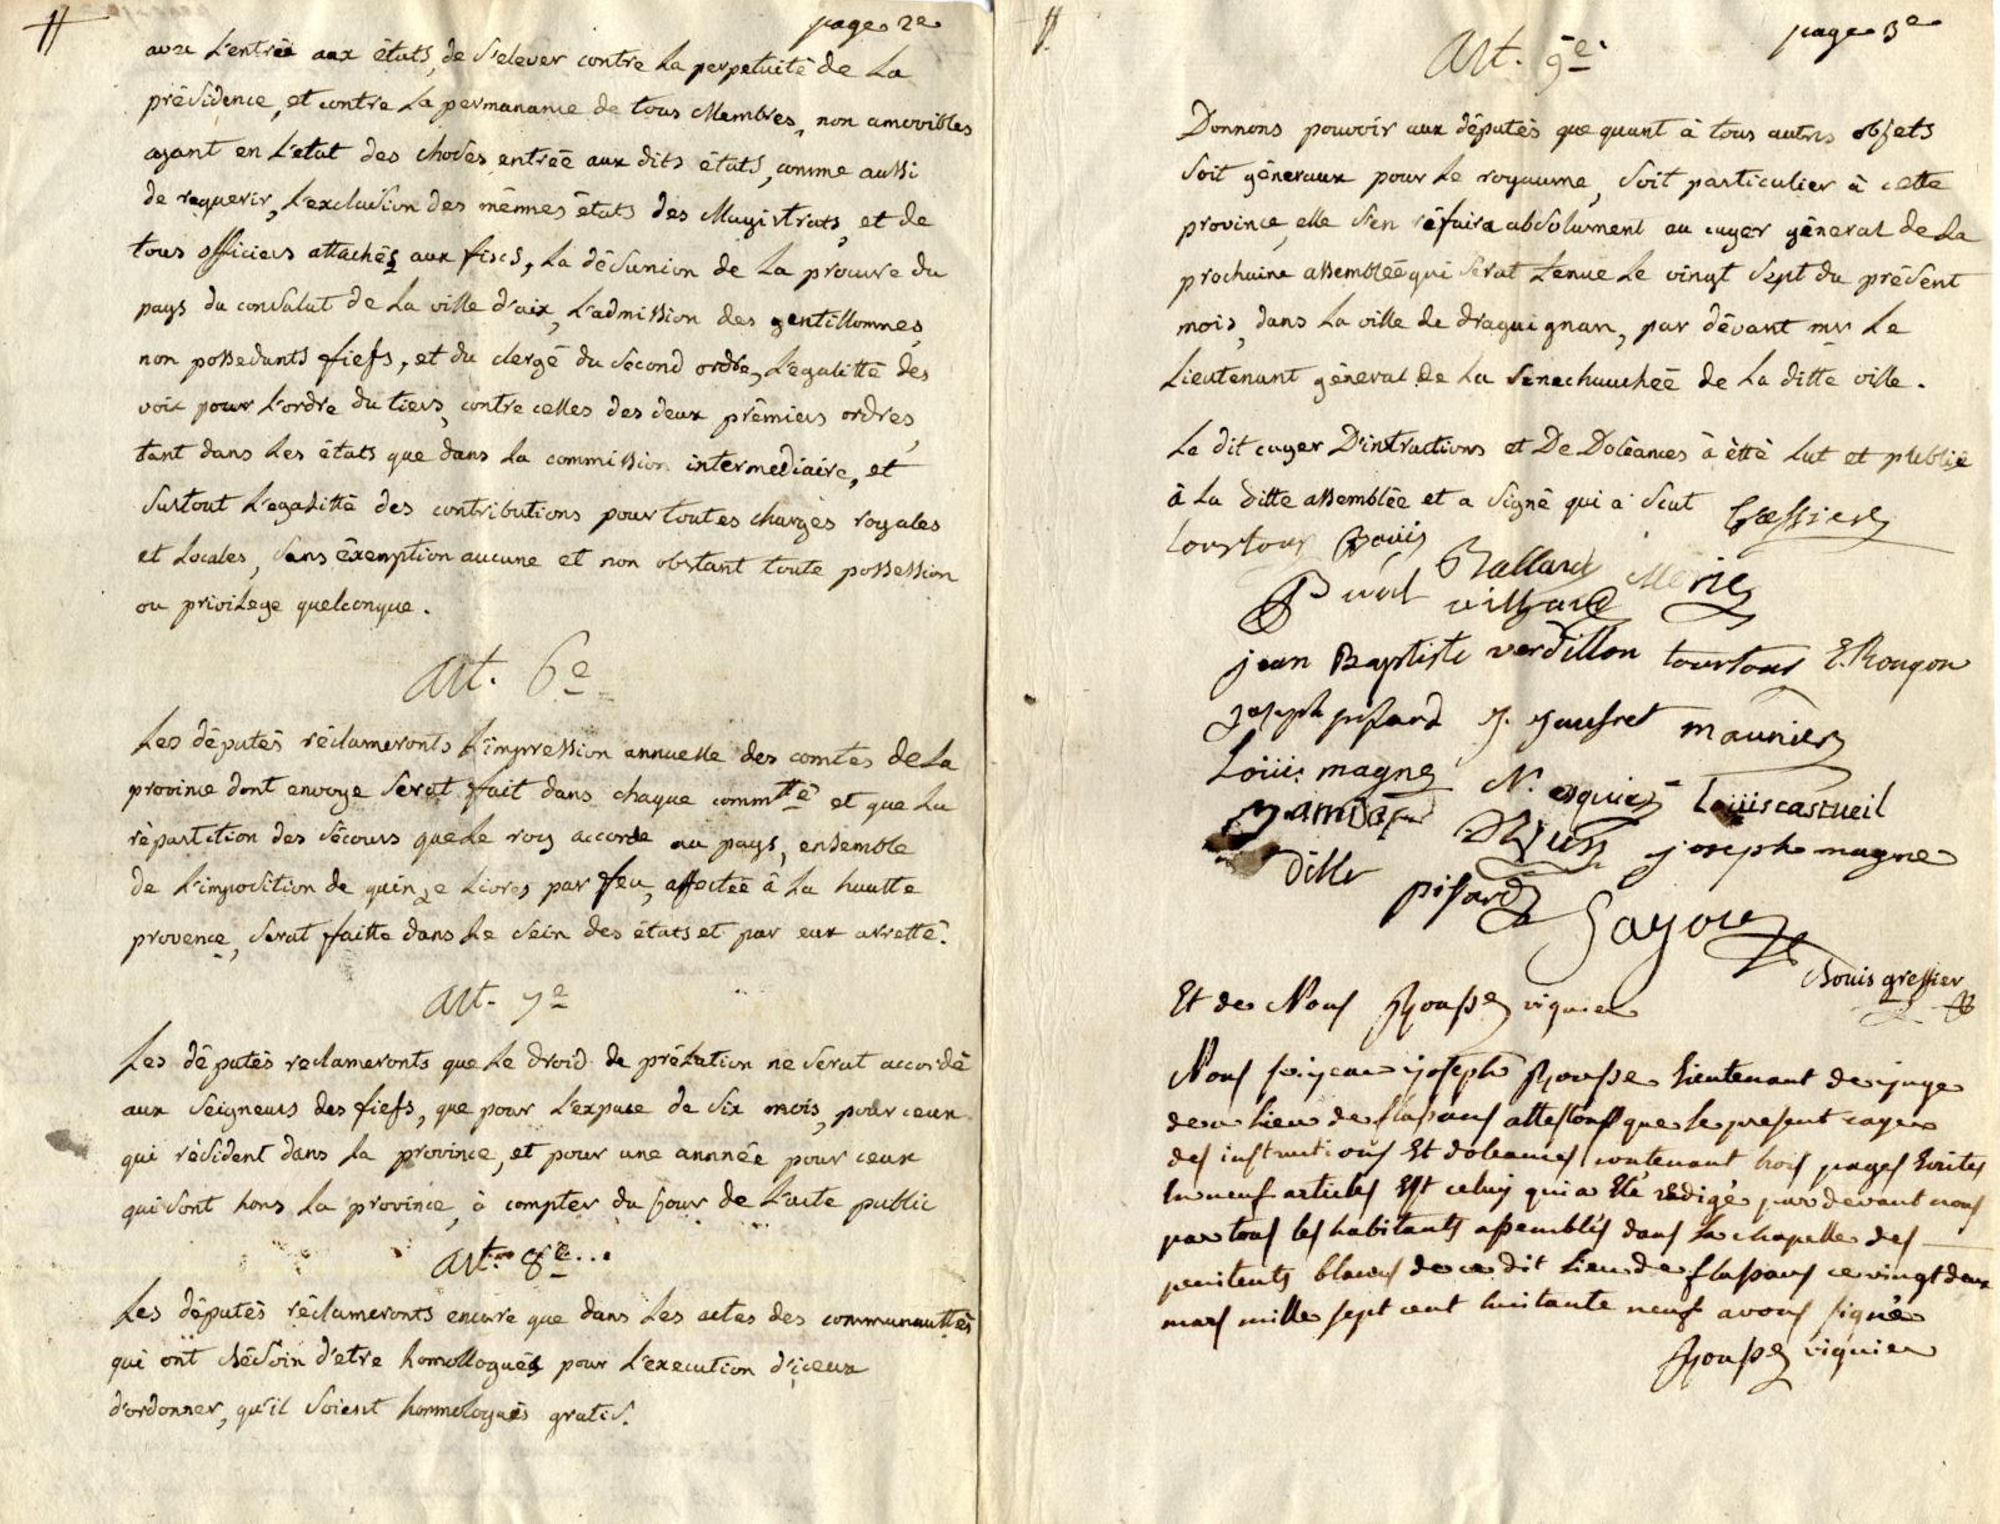 page 2e
avec L'entrée aux êtats, de S'elever contre La perpetuité de La
présidence, et contre La permanance de tous Membres, non amovibles
ayant en L'etat des choses, entrée aux dits êtats, comme aussi
de requerir, L'exclusion des mêmes êtats des Magistrats, et de
tous officiers attachés aux fiscs, La désunion de La procure du
pays du consulat de La ville d'aix, L'admission des gentillommes,
non possedants fiefs, et du clergé du Second ordre, L'egalitté des
voix pour L'ordre du tiers, contre celles des deux prêmiers ordres,
tant dans Les êtats que dans La commission intermediaire, et
Surtout L'egalitté des contributions pour toutes charges royales
et Locales, Sans êxemption aucune et non obstant toute possession
ou privilege quelconque.
Art. 6e
Les députés réclameronts L'impression annuelle des comtes de La
province dont envoye Serat fait dans chaque commtté et que La
répartition des Sécours que Le roy accorde au pays, ensemble
de L'imposition de quinze Livres par feu, affectée â La hautte
provence, Serat faitte dans Le Sein des êtats et par eux arretté.
Art. 7e
Les députés reclameronts que Le droid de prélation ne Serat accordé
aux Seigneurs des fiefs, que pour L'expace de Six mois, pour ceux
qui résident dans La province, et pour une annnée pour ceux
qui Sont hors La province, à compter du jour de L'acte public
Art. 8e...
Les députés réclameronts encore que dans Les actes des communauttés
qui ont bésoin d'etre homollogués pour L'execution d'iceux
d'ordonner, qu'il Soient hommologués gratis.
page 3e
Art. 9e
Donnons pouvoir aux députés que quant â tous autres objets
Soit géneraux pour Le royaume, Soit particulier â cette
province, elle S'en réfaira absolument au cayer géneral de La
prochaine assemblée qui Serat tenue Le vingt Sept du présent
mois, dans La ville de draguignan, par dévant mr Le
Lieutenant géneral de La Senechauchéé de La ditte ville.
Le dit cayer D'intructions et De Doléances à êttè Lut et publié
â La ditte assemblée et a Signé qui a Scut
tourtour
Ballard
jean Baptiste verdillon tourtour E. Rougon
joseph pissard J. Jaufret maunier
Louis magne N. esquier Louis castueil
joseph magne
pissard
Gayou
Bouis greffier
Et de Nous Rousse viguier
Nous Joseph Rousse Lieutenant de juge
de ce Lieu de flassans attestons que le present cayer
des instructions Et doleances contenant trois pages Ecrites
En neuf articles Est celuy qui a Eté redigé par devant nous
par tous les habitants assemblés dans La chapelle des
penitents blancs de ce dit Lieu de flassans ce vingt deux
mars mille sept cent huitante neuf avons signé
Rousse viguier